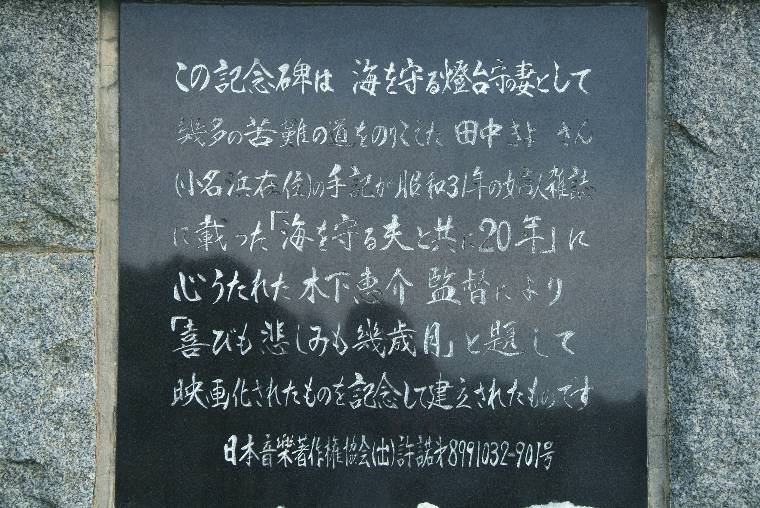 この記念碑は 海を守る燈台守の妻として
幾多の苦難の道をのりこした 田中きよ さん
(小名浜在住)の手記が昭和31年の婦人雑誌
に載った「海を守る夫と共に20年」に
心うたれた 木下恵介 監督により
「喜びも 悲しみも 幾歳月」と 題して
映画化されたものを記念して建立されたものです
日本音楽著作権協会(出)許諾第8991032-901号